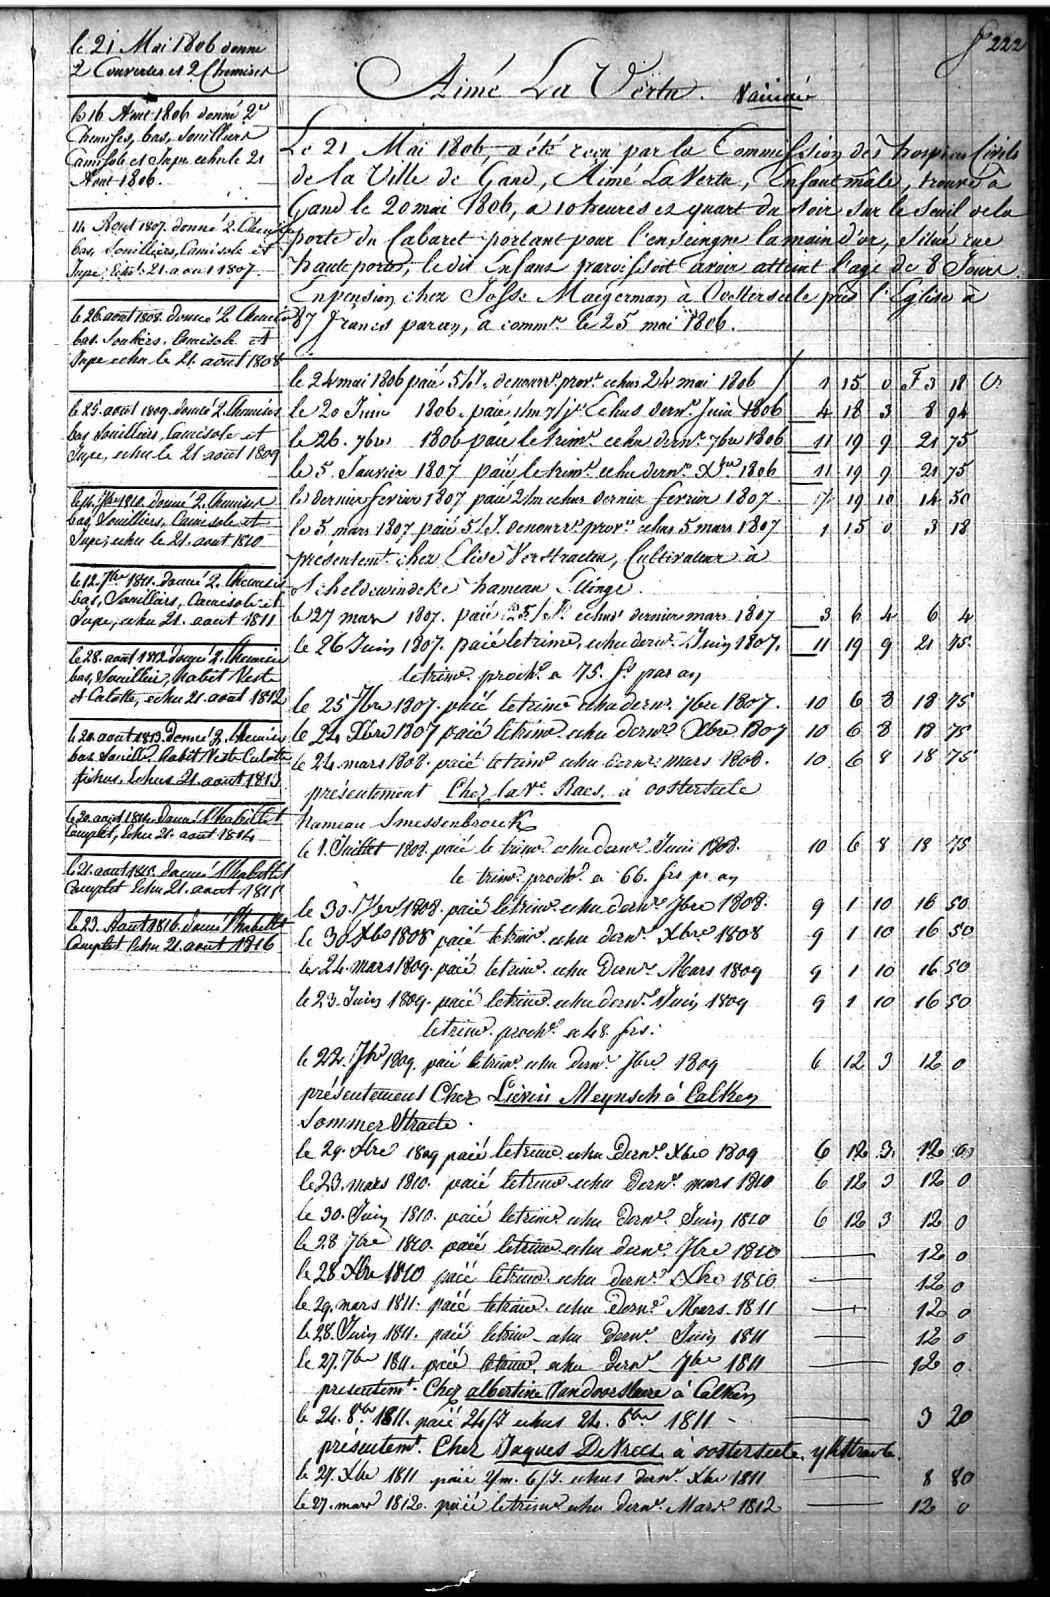 fo 222
le 21 Mai 1806 donné
2 Couvertes et 2 Chemises
le 16 Aout 1806 donné 2
Chemises, bas, Souilliers
Camisole et Jupe echu le 21
Aout 1806.
14 Aout 1807. donné 2 Chemises
bas, Souilliers, Camisole et
Jupe, Echu 21. aout 1807.
le 26 aout 1808. donné 2 Chemises
bas. Souliers. Camisole et
Jupe echu le 21. août 1808
le 25. août 1809. donné 2 Chemises
bas Souilliers, Camisole et
Jupe, echu le 21 août 1809
le 14. 7bre 1810. donné 2. Chemises
bas, Souilliers, Camisole et
Jupe, echu le 21. aout 1810
le 12. 7bre 1811. donné 2. Chemises
bas, Souilliers, Camisole et
Jupe, echu 21. aout 1811
le 28. août 1812 donné 2. Chemises
bas, Souilliers, habit Veste
et Culotte, echu 21. aout 1812
le 20. aout 1813. donné 2. Chemises
bas Souilliers habit Veste Culotte
fichus. Echus 21. aout 1813
le 20. août 1814. donné l'habillet
Complet, Echu 21. aout 1814
le 21. aout 1815. donné l'habillet
Complet Echu 21. aout 1815
le 23. Aout 1816. donné l'habillet
Complet Echu 21. aout 1816
Aimé La Vertu. Vacciné
Le 21 Mai 1806, a été reçu par la Commission des hospices Civils
de la Ville de Gand, Aimé La Vertu, Enfant mâle, trouvé à
Gand le 20 mai 1806, a 10 heures et quart du soir sur le Seuil de la
porte du Cabaret portant pour l'enseingne la main d'or, situé rue
haute porte, le dit Enfant paroissoit avoir atteint l'age de 8 Jours.
En pension chez Joss: Maegerman à Oosterseele près l'Eglise à
87 francs par an, a commr. le 25 mai 1806.
le 24 mai 1806 paié 5/J. de nourre. prove. echus 24 mai 1806 1 15 0 F 3 18
le 20 Juin 1806. paié Echus dernr. Juin 1806 4 18 3 8 94
le 26. 7bre 1806 paié le trimr. echu dernr. 7bre 1806 11 19 9 21 75
le 5. Janvier 1807 paié le trimr. echu dernr. Xbre 1806 11 19 9 21 75
le dernier fevrier 1807 paié 2/m echus dernier fevrier 1807. 7 19 10 14 50
le 5 mars 1807 paié 5/J. de nourre. prove. echus 5 mars 1807 1 15 0 3 18
présentemt. chez Elise Verstraeten, Cultivateur à
Scheldewindeke hameau Ellinge.
le 27 mars 1807. paié 25/J. echus dernier mars 1807 3 6 4 6 4
le 26 Juin 1807. paié le trimr. echu dernr. Juin 1807. 11 19 9 21 75
le trimr. prochr. a 75. fr. par an
le 25 7bre 1807. paié le trimr echu dernr. 7bre 1807. 10 6 8 18 75
le 24 Xbre 1807 paié le trimr echu dernr. Xbre 1807 10 6 8 18 75
le 24. mars 1808. paié le trimr echu dernr. mars 1808. 10 6 8 18 75
présentement Chez la Ve. Raes. à oosterseele
hameau Smessenbrouk
le 1. Juillet 1808. paié le trimr. echu dernr. Juin 1808. 10 6 8 18 75
le trimr. prochr. a 66. frs pr an
le 30. 7bre 1808. paié le trimr. echu dernr. 7bre 1808. 9 1 10 16 50
le 30 Xbre 1808 paié le trimr. echu dernr. Xbre 1808 9 1 10 16 50
le 24. mars 1809. paié le trimr. echu Dernr. Mars 1809 9 1 10 16 50
le 23. Juin 1809. paié le trimr. echu dernr. Juin 1809 9 1 10 16 50
le trimr. prochr. a 48. frs:
le 22. 7bre 1809. paié le trimr. echu dernr. 7bre 1809 6 12 3 12 0
présentement Chez Lievin Meynsch à Calken
Sommer Straete.
le 29. Xbre 1809 paié le trimr. echu Dernr. Xbre 1809 6 12 3 12 0
le 23. mars 1810. paié le trimr echu dernr. mars 1810 6 12 3 12 0
le 30. Juin 1810. paié le trimr echu dernr. Juin 1810 6 12 3 12 0
le 28 7bre 1810. paié le trimr echu dernr. 7bre 1810 12 0
le 28 Xbre 1810 paié le trimr. echu dernr. Xbre 1810 12 0
le 29. mars 1811. paié le trimr. echu Dernr. Mars. 1811 12 0
le 28. Juin 1811. paié le trimr echu Dernr. Juin 1811 12 0
le 27. 7bre 1811. paié le trimr. echu dernr. 7bre 1811 12 0
presentemt. Chez albertine Vandoorslaere à Calken
le 24. 8bre 1811. paié 24/J echus 24. 8bre 1811 - 3 20
présentemt. Chez Jaques DeVrees à oosterseele.
le 27. Xbre 1811 paié 2/m. 6/J. echus dernr. Xbre 1811 8 80
le 27. mars 1812. paié le trimr echu dernr. Mars. 1812 12 0